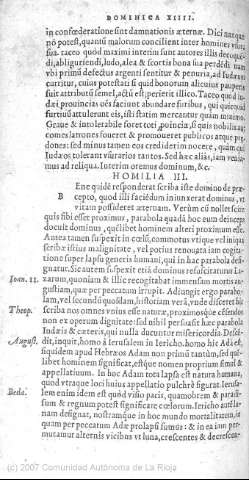 DOMINICA XIIII.
in confœderatione sunt damnationis æternæ. Dici nat que
nō potest, quantū malorum concilient inter homines
sua. taceo quod maximi interim sunt autores illis
di, abliguriendi, ludo, alea & scortis bona sua perdēdi
vbi primū defectus argenti sentitur & penuria, ad Iudæos
curritur, cuius potestati si quid bonorum alicuius
suit attributū semel, actū est, periēt illico. Taceo quod
dæi prouincias oēs faciunt abundare furibus, qui
furtiuū attulerunt eis, isti statim mercantur quam
Graue & intolerabile foret toti puincię, si quis
comes latrones foueret & promoueret publicos
dones: sed minus tamen eos crediderim nocere, quam
Iudæos tolerant vsurarios tantos. Sed hæc aliàs, iam venia-
mus ad reliqua. Interim oremus dominum, &c.
HOMILIA III.
BEne quidē responderat scriba iste domino de præ-
cepto, quod illi faciēdum iniunxerat dominus, vt
vitam possideret æternam. Verùm cū nollet
quis sibi esset proximus, parabola quadā hoc eum deinceps
docuit dominus, quēlibet hominem alteri proximum esse.
Antea tamen suspexit in cœlū, commotus vtique vel inius
scribæ istius malignitate, vel potius renouata iam cogita-
tione super lapsu generis humani, qui in hac parabola desi-
gnatur. Sic autem suspexit etiā dominus resuscitaturus La-
Ioan. 11. zarum, quoniam & illic recogitabat immensum mortis an-
gustiam, quæ per peccatum irrupit. Adiungit ergo parabo-
lam, vel secundū quosdam, historiam verā, vnde disceret hic
Theop. scriba nos omnes vnius esse naturæ, proximosque cēsendos
non ex operum dignitate: sed nihil persuasit hæc parabola
Iudæis & cæteris, qui nulla ducuntur misericordia. Descē-
August. dit, inquit, homo à Ierusalem in Iericho. homo hic Adā est,
siquidem apud Hebræos Adam non primū tantùm, sed quē-
libet hominem significat, estque nomen proprium simul &
appellatiuum. In hoc Adam tota lapsa est natura humana,
quod vtraque loci huius appellatio pulchrè figurat. Ierusa-
Beda. lem enim idem est quod visio pacis, quamobrem & paradi-
sum & regnum potest significare cœlorum. Iericho autē lu-
nam designat, nostramque in hoc mundo mortalitatem, in
quam per peccatum Adæ prolapsi sumus: & in ea iam per-
mutamur alternis vicibus vt luna, crescentes & decrescen-
(c) 2007 Comunidad Autónoma de La Rioja